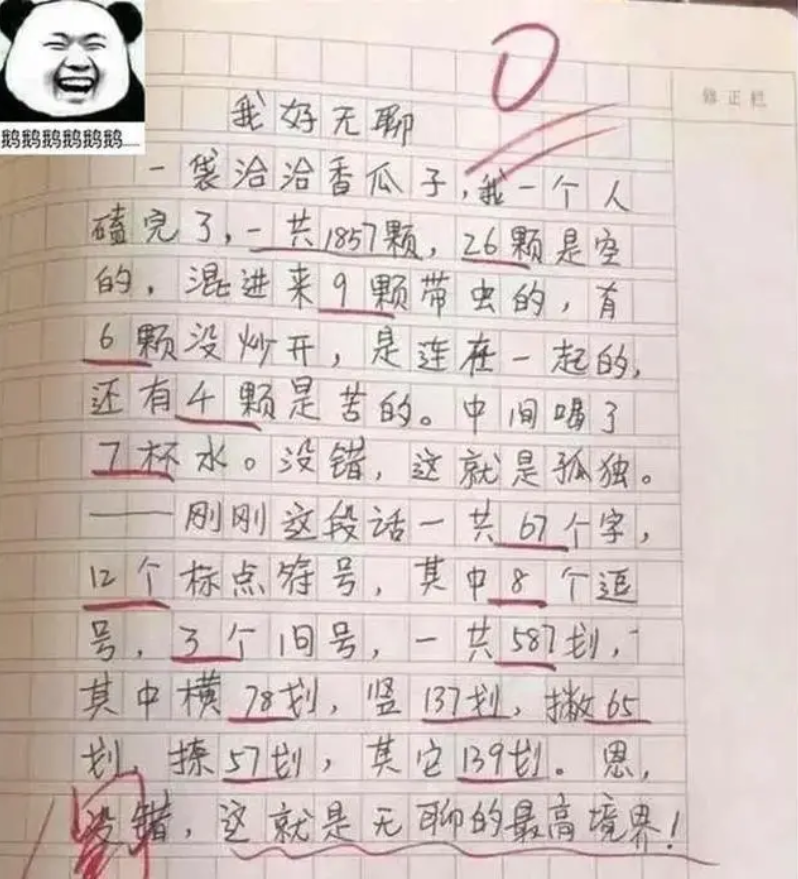 鹅鹅鹅鹅鹅鹅.....
0
修正栏
我好无聊
一袋洽洽香瓜子,我一个人
磕完了,一共1857颗,26颗是空
的,混进来9颗带虫的,有
6颗没炒开,是连在一起的,
还有4颗是苦的。中间喝了
7杯水。没错,这就是孤独。
——刚刚这段话一共67个字,
12个标点符号,其中8个逗
号,3个间号,一共587划,
其中横78划,竖137划,撇65
划,捺57划,其它139划。恩,
没错,这就是无聊的最高境界!